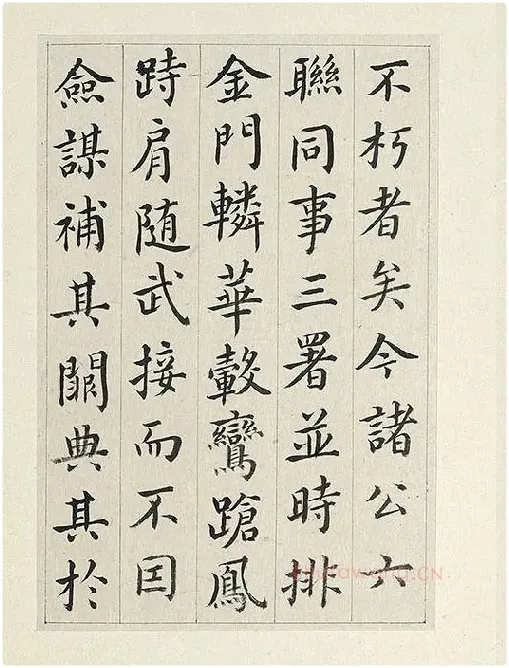 不朽者矣今諸公六
聯同事三署並時排
金門轔華轂鸞蹌鳳
跱肩随武接而不因
僉謀補其闕典其於